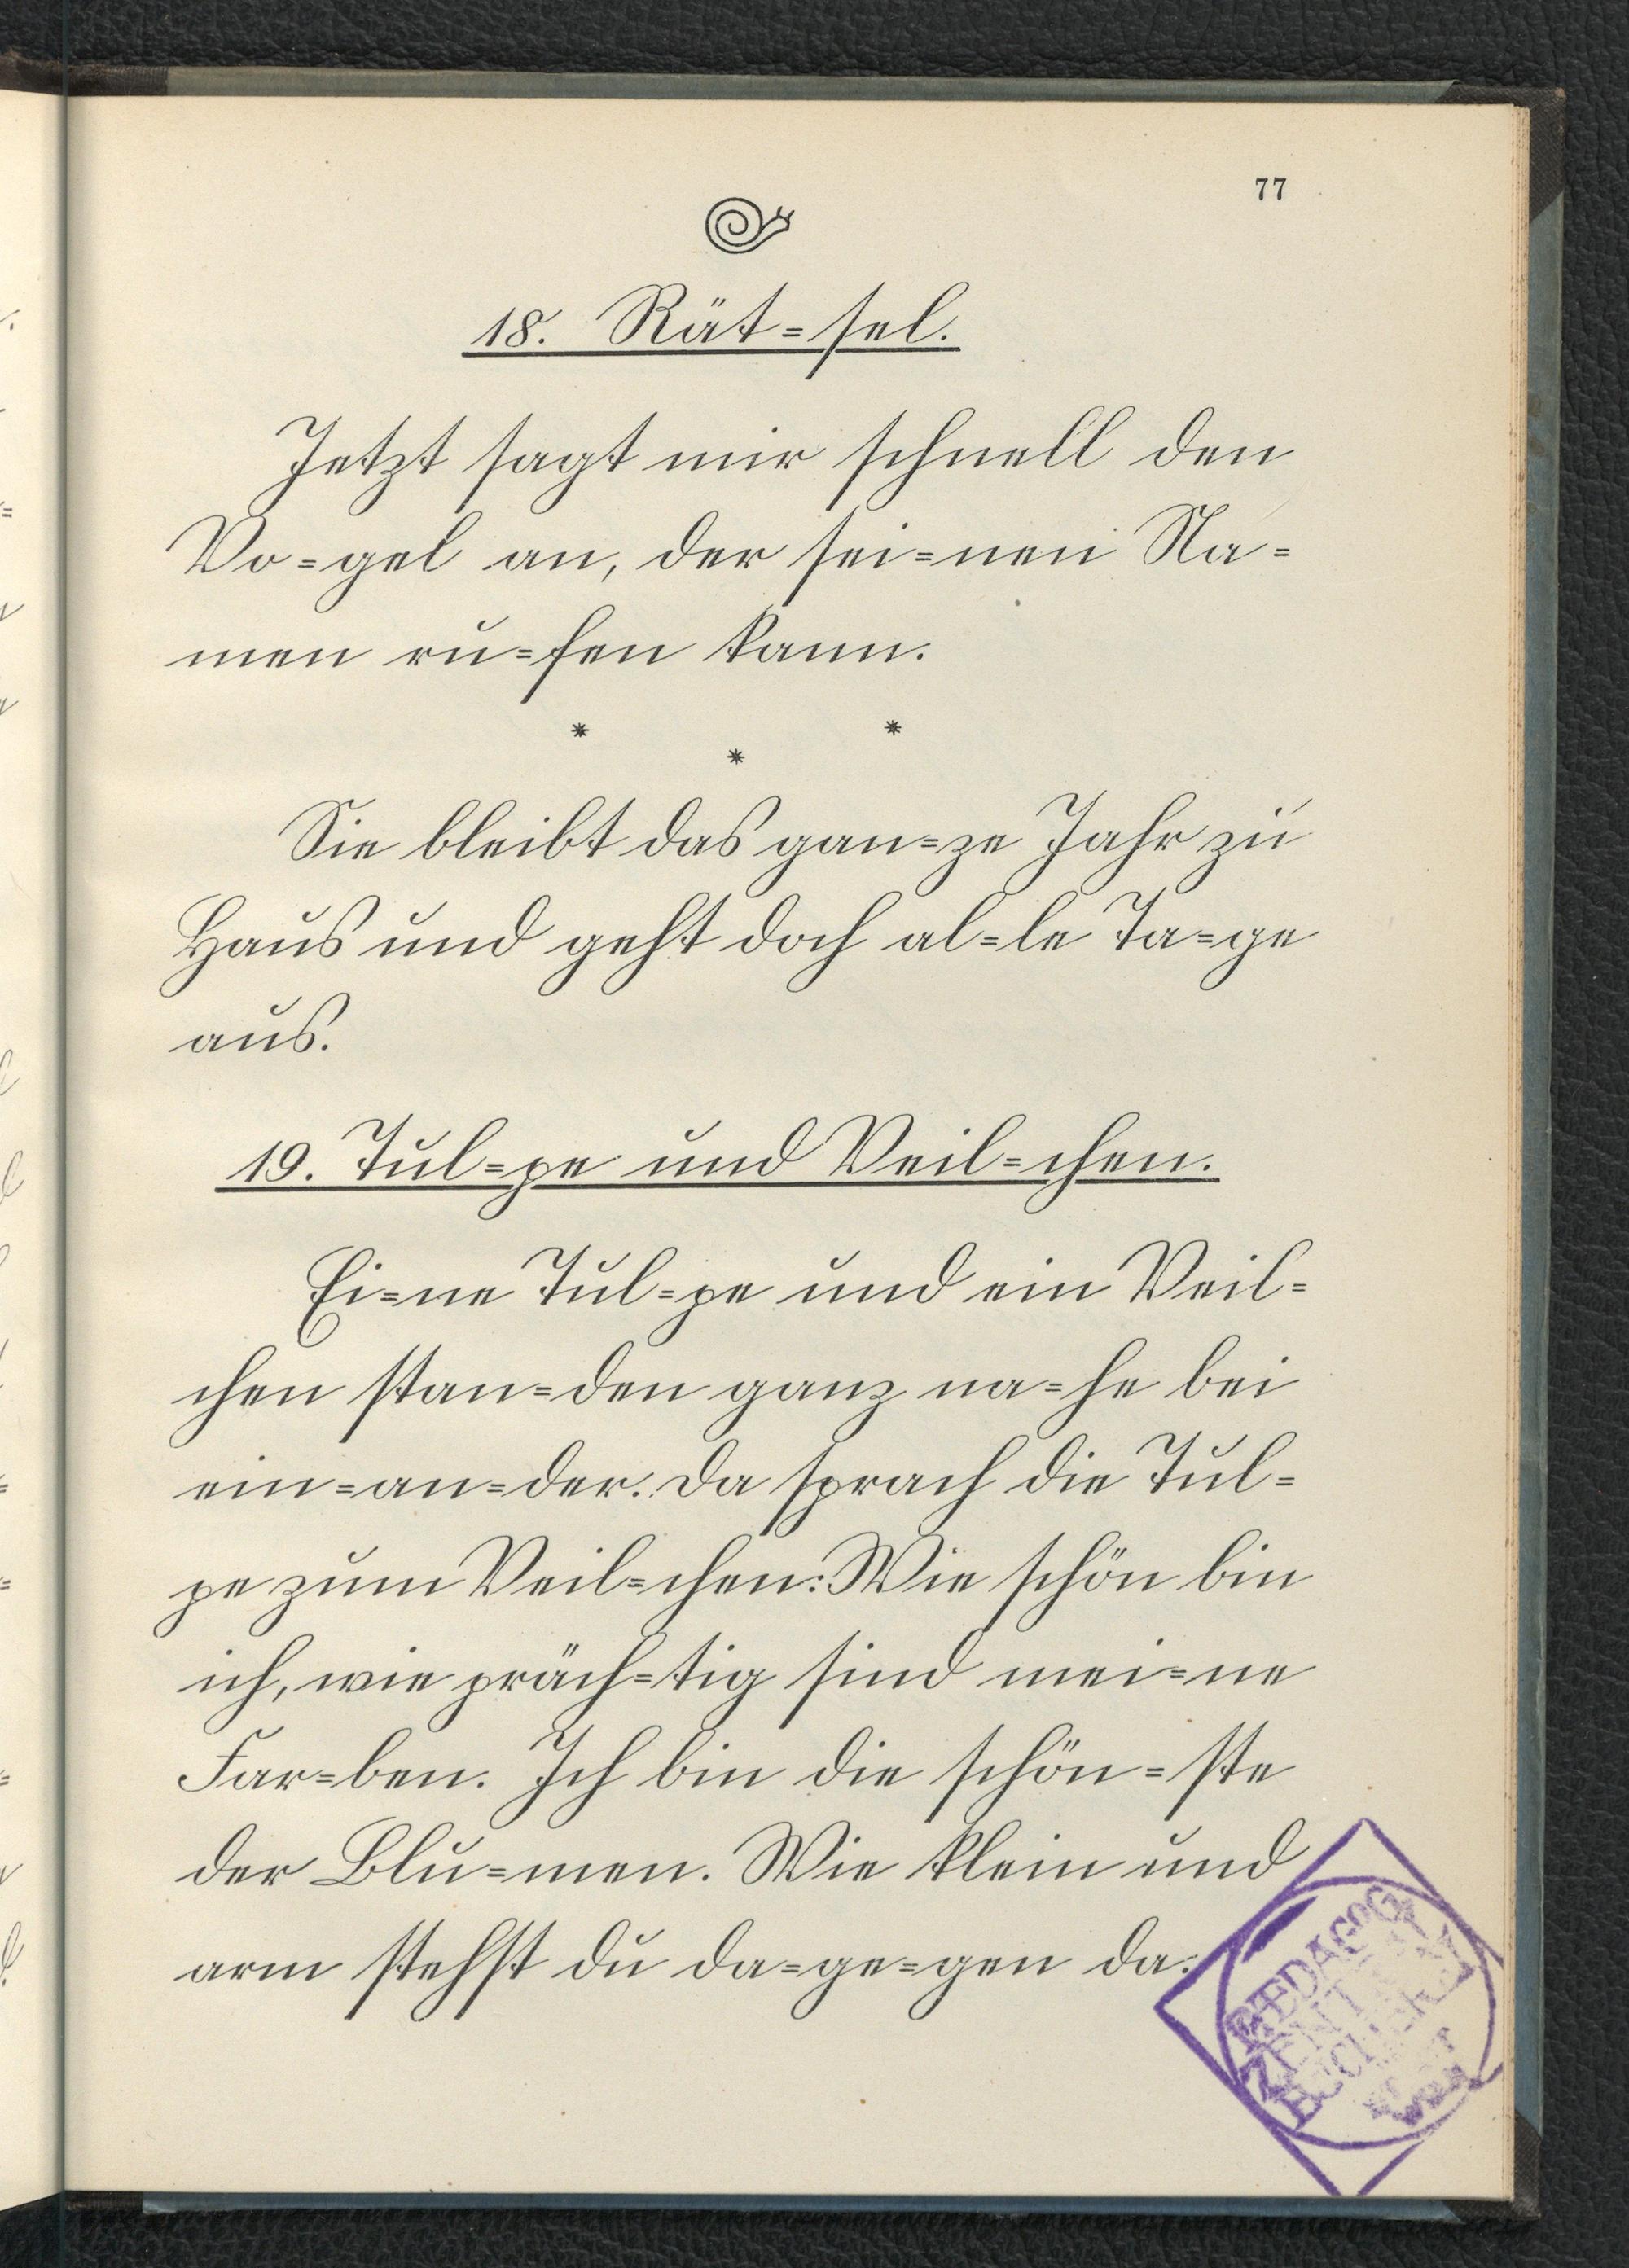 77
18. Rät=sel.
Jetzt sagt mir schnell den
Vo=gel an, der sei=nen Na=
men ru=fen kann.
* * *
Sie bleibt das gan=ze Jahr zu
Haus und geht doch al=le Ta=ge
aus.
19. Tul=pe und Veil=chen.
Ei=ne Tul=pe und ein Veil=
chen stan=den ganz na=he bei
ein=an=der. Da sprach die Tul=
pe zum Veil=chen: Wie schön bin
ich, wie präch=tig sind mei=ne
Far=ben. Ich bin die schön=ste
der Blu=men. Wie klein und
arm stehst du da=ge=gen da.
PÆDAGOG
ZENTRAL
BÜCHEREI